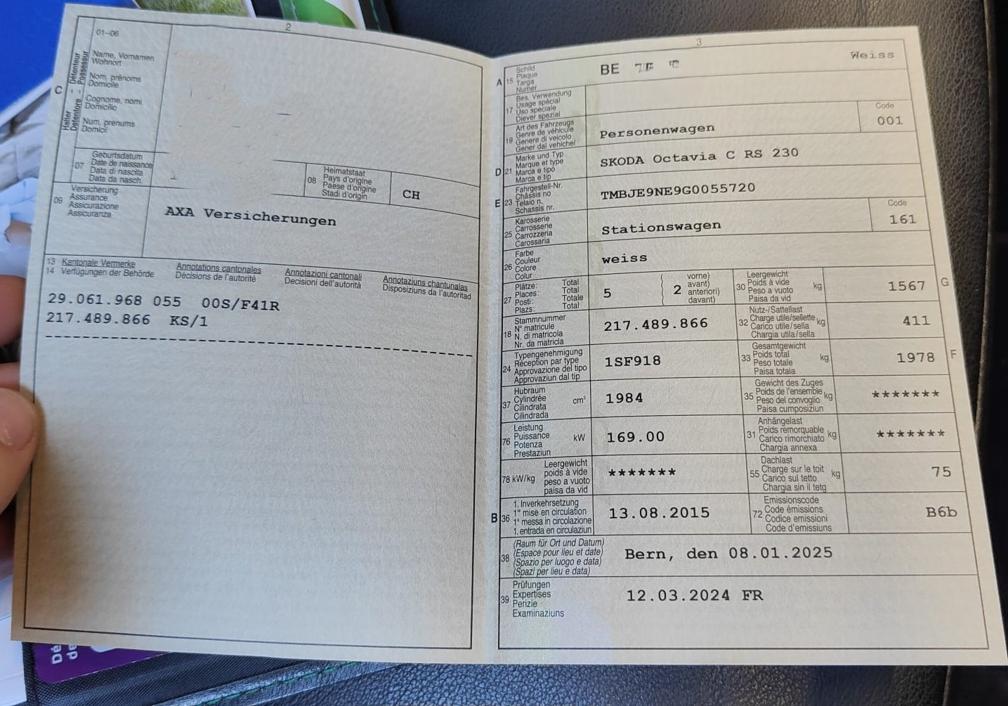 2
01-06
Halter - Détenteur
Detentore - Possessur
C
Name, Vornamen
Wohnort
Nom, prénoms
Domicile
Cognome, nomi
Domicilio
Num, prenums
Domicil
07
Geburtsdatum
Date de naissance
Data di nascita
Data da nasch.
08
Heimatstaat
Pays d'origine
Paese d'origine
Stadi d'origin
CH
09
Versicherung
Assurance
Assicurazione
Assicuranza
AXA Versicherungen
13 Kantonale Vermerke Annotations cantonales Annotazioni cantonali Annotaziuns chantunalas
14 Verfügungen der Behörde Décisions de l'autorité Decisioni dell'autorità Disposiziuns da l'autoritad
29.061.968 055 00S/F41R
217.489.866 KS/1
3
A 15
Schild
Plaque
Targa
Numer
BE
Weiss
17
Bes. Verwendung
Usage spécial
Uso speciale
Diever spezial
19
Art des Fahrzeugs
Genre de véhicule
Genere di veicolo
Gener dal vehichel
Personenwagen
Code
001
D 21
Marke und Typ
Marque et type
Marca e tipo
Marca e tip
SKODA Octavia C RS 230
E 23
Fahrgestell-Nr.
Châssis no
Telaio n.
Schassis nr.
TMBJE9NE9G0055720
25
Karosserie
Carrosserie
Carrozzeria
Carossaria
Stationswagen
Code
161
26
Farbe
Couleur
Colore
Colur
weiss
27
Plätze: Total
Places: Total
Posti: Totale
Plazs: Total
5
( 2
vorne)
avant)
anteriori)
davant)
30
Leergewicht
Poids à vide
Peso a vuoto
Paisa da vid
kg
1567
G
18
Stammnummer
N° matricule
N. di matricola
Nr. da matricla
217.489.866
32
Nutz-/Sattellast
Charge utile/sellette
Carico utile/sella
Chargia utila/sella
kg
411
24
Typengenehmigung
Réception par type
Approvazione del tipo
Approvaziun dal tip
1SF918
33
Gesamtgewicht
Poids total
Peso totale
Paisa totala
kg
1978
F
37
Hubraum
Cylindrée
Cilindrata
Cilindrada
cm³
1984
35
Gewicht des Zuges
Poids de l'ensemble
Peso del convoglio
Paisa cumposiziun
kg
*******
76
Leistung
Puissance
Potenza
Prestaziun
kW
169.00
31
Anhängelast
Poids remorquable
Carico rimorchiato
Chargia annexa
kg
*******
78 kW/kg
Leergewicht
poids à vide
peso a vuoto
paisa da vid
*******
55
Dachlast
Charge sur le toit
Carico sul tetto
Chargia sin il tetg
kg
75
B 36
1. Inverkehrsetzung
1re mise en circulation
1a messa in circolazione
1. entrada en circulaziun
13.08.2015
72
Emissionscode
Code émissions
Codice emissioni
Code d'emissiuns
B6b
38
(Raum für Ort und Datum)
(Espace pour lieu et date)
(Spazio per luogo e data)
(Spazi per lieu e data)
Bern, den 08.01.2025
39
Prüfungen
Expertises
Perizie
Examinaziuns
12.03.2024 FR